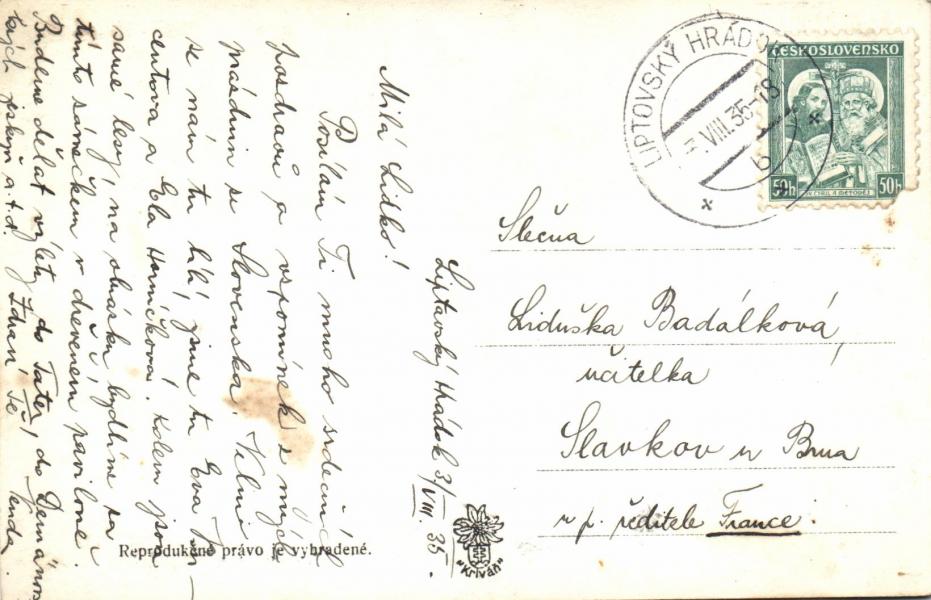 Liptovský Hrádok 3/VIII. 35.
Milá Lidko!
Posílám Ti mnoho srdečných
pozdravů a vzpomínek z mých
prázdnin se Slovenska. Velmi
se nám tu líbí, jsme tu Eva
centova a Ela Kolem jsou
samé lesy, na obrázku bydlíme za
tímto zámečkem v dřeveném paviloně.
Budeme dělat výlety do Tater, do Demänov
ských jeskyň a.t.d. Zdraví Tě enda
Reprodukčné právo je vyhradené.
"Kriváň"
LIPTOVSKÝ HRÁDOK
VIII. 35-18
b
ČESKOSLOVENSKO
50h 50h
CYRIL A METODĚJ
Slečna
Liduška Badálková,
učitelka
Slavkov u Brna
u p. ředitele France.